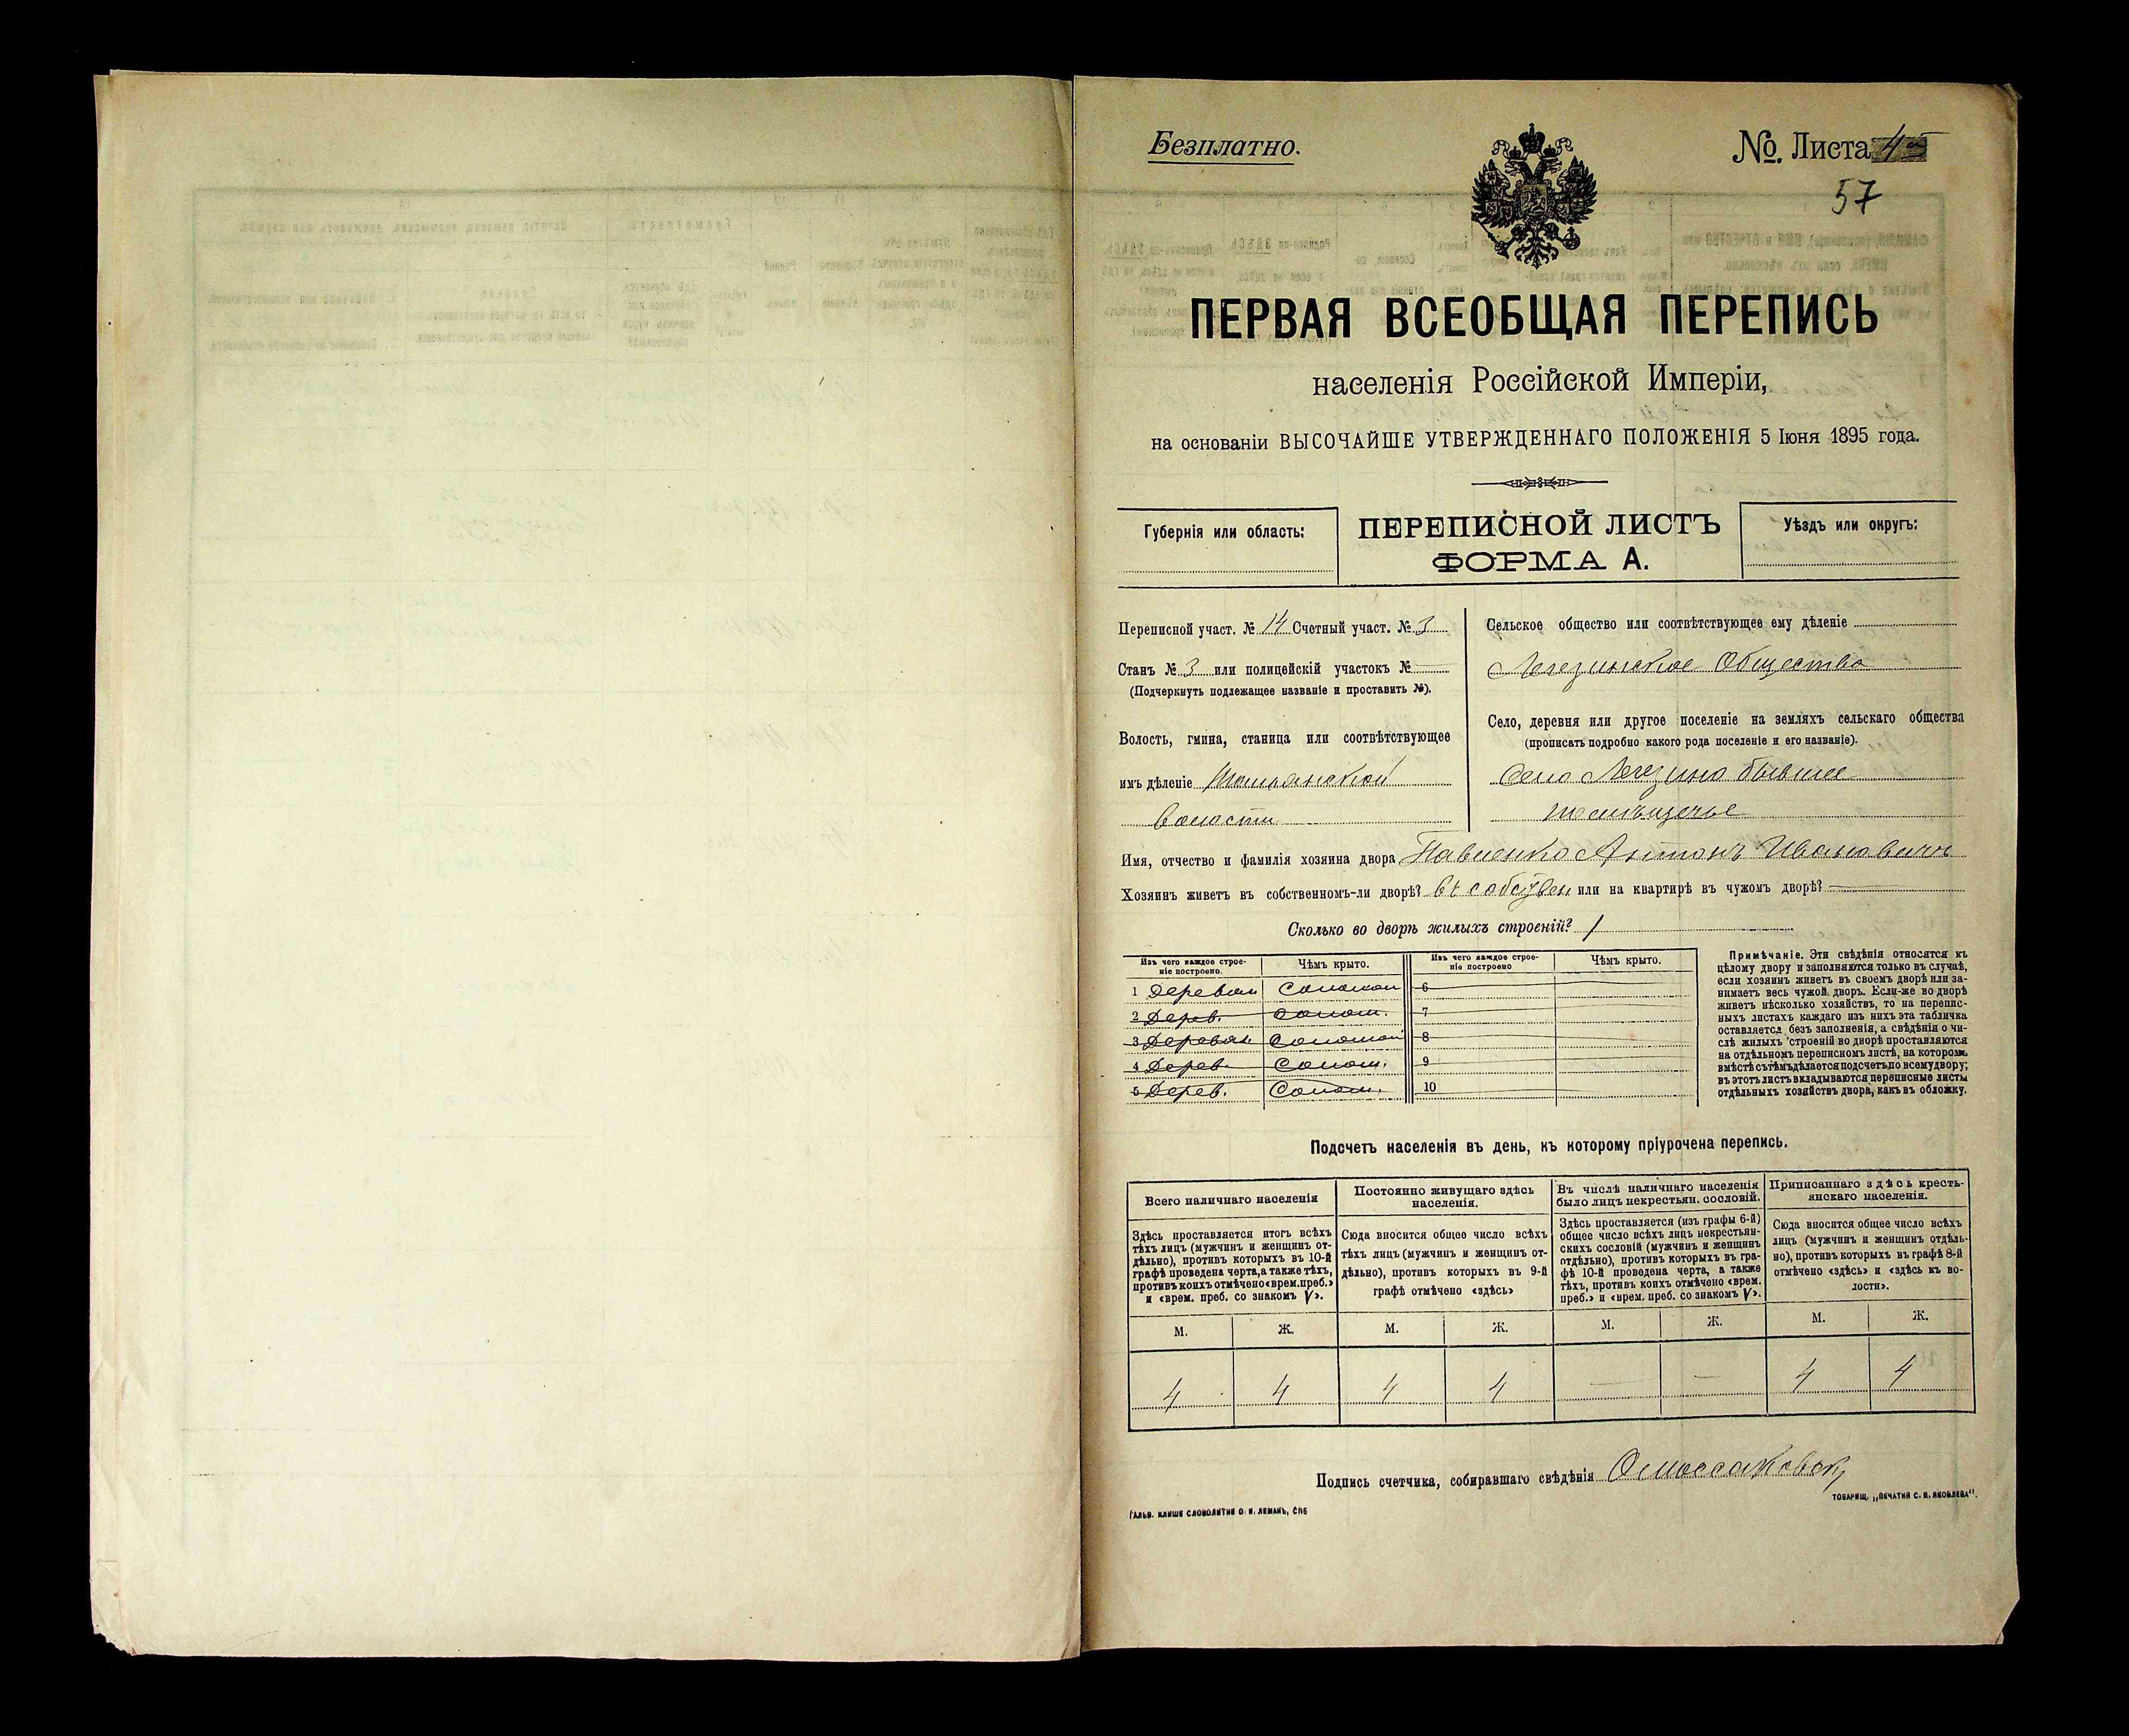 Безплатно.
№. Листа
57
ПЕРВАЯ ВСЕОБЩАЯ ПЕРЕПИСЬ
населенія Россійской Имперіи,
на основаніи ВЫСОЧАЙШЕ УТВЕРЖДЕННАГО ПОЛОЖЕНІЯ 5 Іюня 1895 года.
Губернія или область:
ПЕРЕПИСНОЙ ЛИСТЪ
ФОРМА А.
Уѣздъ или округъ:
Переписной участ. № 14 Счетный участ. № 3
Станъ № 3 или полицейскій участокъ № —
(Подчеркнуть подлежащее названіе и проставить №).
Волость, гмина, станица или соотвѣтствующее
имъ дѣленіе
волости
Сельское общество или соотвѣтствующее ему дѣленіе
Легезинское Общество
Село, деревня или другое поселеніе на земляхъ сельскаго общества
(прописать подробно какого рода поселеніе и его названіе).
Село Легезино бывшее
Имя, отчество и фамилія хозяина двора Павленко Антонъ Ивановичъ
Хозяинъ живетъ въ собственномъ-ли дворѣ? въ собствен или на квартирѣ въ чужомъ дворѣ? —
Сколько во дворѣ жилыхъ строеній? 1
Изъ чего каждое строе-
ніе построено.
Чѣмъ крыто.
Изъ чего каждое строе-
ніе построено
Чѣмъ крыто.
1 Деревян Соломой 6
2 Дерев. Солом. 7
3 Деревян. Соломой 8
4 Дерев. Солом. 9
5 Дерев. Солом. 10
Примѣчаніе. Эти свѣдѣнія относятся къ
цѣлому двору и заполняются только въ случаѣ,
если хозяинъ живетъ въ своемъ дворѣ или за-
нимаетъ весь чужой дворъ. Если-же во дворѣ
живетъ нѣсколько хозяйствъ, то на перепис-
ныхъ листахъ каждаго изъ нихъ эта табличка
оставляется безъ заполненія, а свѣдѣнія о чи-
слѣ жилыхъ строеній во дворѣ проставляются
на отдѣльномъ переписномъ листѣ, на которомъ
вмѣстѣ съ тѣмъ дѣлается подсчетъ по всему двору;
въ этотъ листъ вкладываются переписные листы
отдѣльныхъ хозяйствъ двора, какъ въ обложку.
Подсчетъ населенія въ день, къ которому пріурочена перепись.
Всего наличнаго населенія
Здѣсь проставляется итогъ всѣхъ
тѣхъ лицъ (мужчинъ и женщинъ от-
дѣльно), противъ которыхъ въ 10-й
графѣ проведена черта, а также тѣхъ,
противъ коихъ отмѣчено «врем. преб.»
и «врем. преб. со знакомъ V».
Постоянно живущаго здѣсь
населенія.
Сюда вносится общее число всѣхъ
тѣхъ лицъ (мужчинъ и женщинъ от-
дѣльно), противъ которыхъ въ 9-й
графѣ отмѣчено «здѣсь»
Въ числѣ наличнаго населенія
было лицъ некрестьян. сословій.
Здѣсь проставляется (изъ графы 6-й)
общее число всѣхъ лицъ некрестьян-
скихъ сословій (мужчинъ и женщинъ
отдѣльно), противъ которыхъ въ гра-
фѣ 10-й проведена черта, а также
тѣхъ, противъ коихъ отмѣчено «врем.
преб.» и «врем. преб. со знакомъ V».
Приписаннаго здѣсь кресть-
янскаго населенія.
Сюда вносится общее число всѣхъ
лицъ (мужчинъ и женщинъ отдѣль-
но), противъ которыхъ въ графѣ 8-й
отмѣчено «здѣсь» и «здѣсь къ во-
лости».
М. Ж. М. Ж. М. Ж. М. Ж.
4 4 4 4 — — 4 4
Подпись счетчика, собиравшаго свѣдѣнія
ГАЛЬВ. КЛИШЕ СЛОВОЛИТНИ О. И. ЛЕМАНЪ, СПБ
ТОВАРИЩ. „ПЕЧАТНЯ С. П. ЯКОВЛЕВА“.